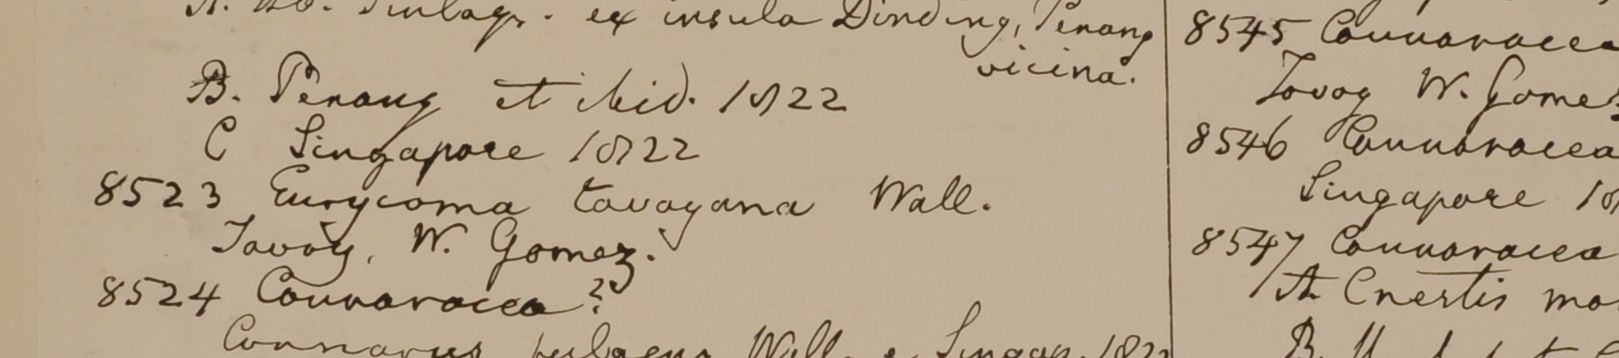 ex insula Dinding, Penang
vicina.
B. Penang et ibid. 1822
C Singapore 1822
8523 Eurycoma tavoyana Wall.
Tavoy, W. Gomez.
8524 Connaracea?
Connarus Wall. Singap. 1822
8545 Connaracea
Tavoy W. Gomez
8546 Connaracea
Singapore
8547 Connaracea
A Cnestis
B.